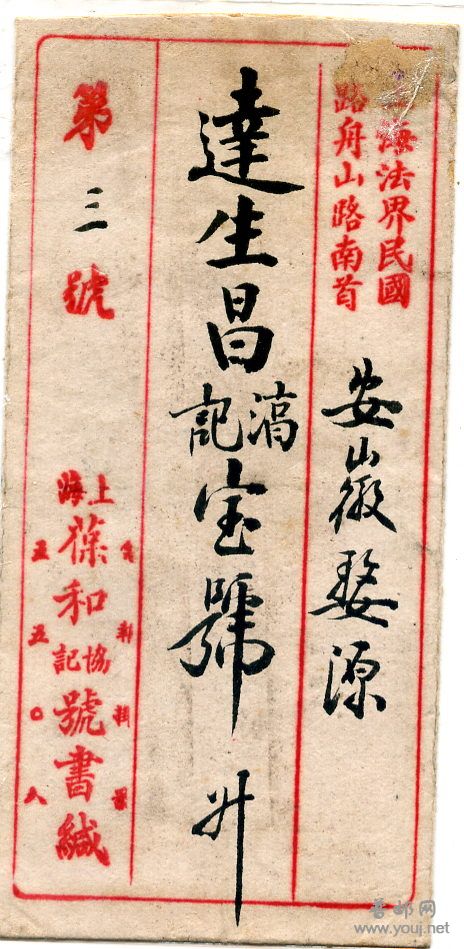 海法界民國
路舟山路南首
安徽婺源
達生昌
滈記
宝號 升
第三號
上海
葆和
協記
號書緘
五五〇八
www.youj.net